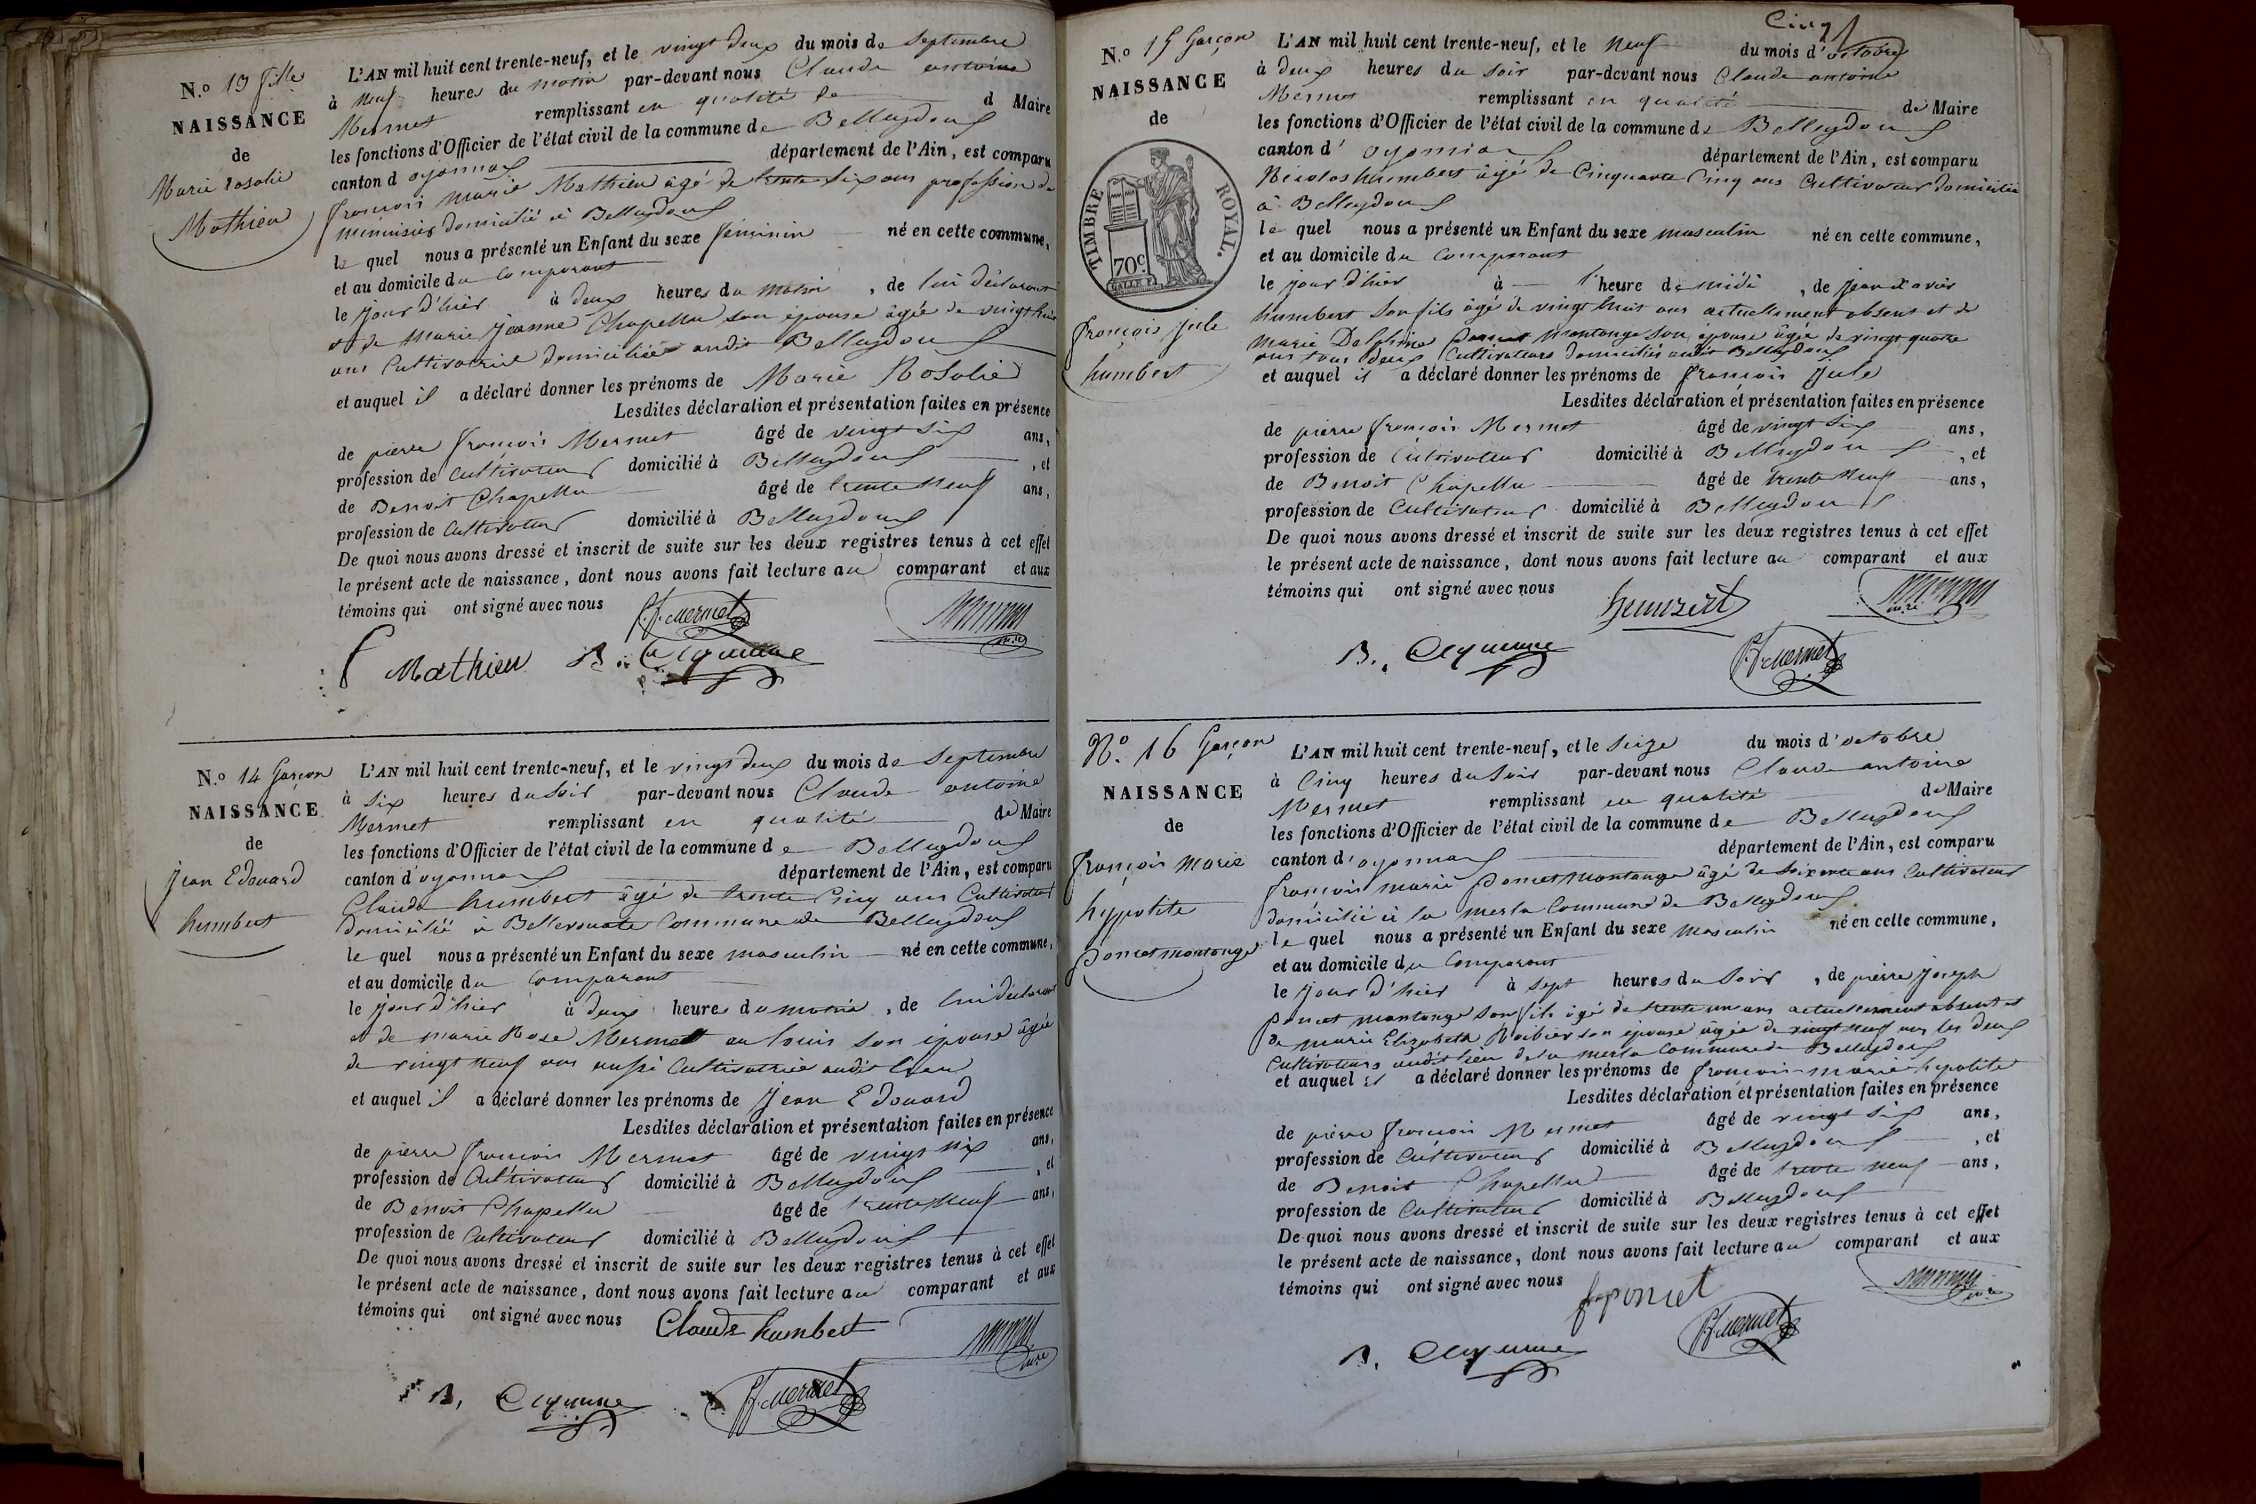 N.o 13 fille
NAISSANCE
de
Marie rosalie
Mathieu
L'AN mil huit cent trente-neuf, et le vingt deux du mois de Septembre
à neuf heures du matin par-devant nous Claude antoine
Mermet remplissant en qualité de d Maire
les fonctions d'Officier de l'état civil de la commune de Belleydoux
canton d oyonnax département de l'Ain, est comparu
françois marie Mathieu âgé de trente six ans profession de
menuisier domicilié à Belleydoux
le quel nous a présenté un Enfant du sexe féminin né en cette commune,
et au domicile du Comparant
le jour d'hier à deux heures du matin, de lui déclarant
et de Marie jeanne Chapellu son épouse âgée de vingt huit
ans Cultivatrice domiciliée audit Belleydoux
et auquel il a déclaré donner les prénoms de Marie Rosalie
Lesdites déclaration et présentation faites en présence
de pierre françois Mermet âgé de vingt six ans,
profession de Cultivateur domicilié à Belleydoux, et
de Benoit Chapellu âgé de trente neuf ans,
profession de Cultivateur domicilié à Belleydoux
De quoi nous avons dressé et inscrit de suite sur les deux registres tenus à cet effet
le présent acte de naissance, dont nous avons fait lecture au comparant et aux
témoins qui ont signé avec nous
P. f. Mermet
Mathieu B.
N.o 14 Garçon
NAISSANCE
de
jean Edouard
humbert
L'AN mil huit cent trente-neuf, et le vingt deux du mois de Septembre
à Six heures du Soir par-devant nous Claude antoine
Mermet remplissant en qualité de Maire
les fonctions d'Officier de l'état civil de la commune de Belleydoux
canton d oyonnax département de l'Ain, est comparu
Claude humbert âgé de trente Cinq ans Cultivateur
domicilié à Bellevouate Commune de Belleydoux
le quel nous a présenté un Enfant du sexe masculin né en cette commune,
et au domicile du Comparant
le jour d'hier à deux heures du matin, de lui déclarant
et de marie Rose Mermet au louis son épouse âgée
de vingt neuf ans aussi Cultivatrice audit lieu
et auquel il a déclaré donner les prénoms de Jean Edouard
Lesdites déclaration et présentation faites en présence
de pierre françois Mermet âgé de vingt six ans,
profession de Cultivateur domicilié à Belleydoux, et
de Benoit Chapellu âgé de trente neuf ans,
profession de Cultivateur domicilié à Belleydoux
De quoi nous avons dressé et inscrit de suite sur les deux registres tenus à cet effet
le présent acte de naissance, dont nous avons fait lecture au comparant et aux
témoins qui ont signé avec nous Claude humbert
maire
B. P f. Mermet
Cinq
N.o 15 Garçon
NAISSANCE
de
TIMBRE ROYAL.
70c.
françois jule
humbert
L'AN mil huit cent trente-neuf, et le neuf du mois d'octobre
à deux heures du soir par-devant nous Claude antoine
Mermet remplissant en qualité de Maire
les fonctions d'Officier de l'état civil de la commune de Belleydoux
canton d' oyonnax département de l'Ain, est comparu
Nicolas humbert âgé de Cinquante Cinq ans Cultivateur domicilié
à Belleydoux
le quel nous a présenté un Enfant du sexe masculin né en cette commune,
et au domicile du Comparant
le jour d'hier à l'heure de midi, de jean xavier
humbert son fils âgé de vingt huit ans actuellement absent et de
Marie Delphine Poncet montange son épouse âgée de vingt quatre
ans tous deux Cultivateurs domiciliés audit Belleydoux
et auquel il a déclaré donner les prénoms de françois jule
Lesdites déclaration et présentation faites en présence
de pierre françois Mermet âgé de vingt six ans,
profession de Cultivateur domicilié à Belleydoux, et
de Benoit Chapellu âgé de trente neuf ans,
profession de Cultivateur domicilié à Belleydoux
De quoi nous avons dressé et inscrit de suite sur les deux registres tenus à cet effet
le présent acte de naissance, dont nous avons fait lecture au comparant et aux
témoins qui ont signé avec nous humbert
maire
B. P f. Mermet
N.o 16 Garçon
NAISSANCE
de
françois marie
hyppolite
poncet montange
L'AN mil huit cent trente-neuf, et le Seize du mois d'octobre
à Cinq heures du Soir par-devant nous Claude antoine
Mermet remplissant en qualité de Maire
les fonctions d'Officier de l'état civil de la commune de Belleydoux
canton d'oyonnax département de l'Ain, est comparu
françois marie poncet montange âgé de soixante ans Cultivateur
domicilié à la merla Commune de Belleydoux
le quel nous a présenté un Enfant du sexe masculin né en cette commune,
et au domicile du Comparant
le jour d'hier à sept heures du Soir, de pierre joseph
poncet montange son fils âgé de trente un ans actuellement absent et
de marie Elizabeth son épouse âgée de vingt neuf ans les deux
Cultivateurs audit lieu de la merla Commune de Belleydoux
et auquel il a déclaré donner les prénoms de françois marie hypolite
Lesdites déclaration et présentation faites en présence
de pierre françois Mermet âgé de vingt six ans,
profession de Cultivateur domicilié à Belleydoux, et
de Benoit Chapellu âgé de trente neuf ans,
profession de Cultivateur domicilié à Belleydoux
De quoi nous avons dressé et inscrit de suite sur les deux registres tenus à cet effet
le présent acte de naissance, dont nous avons fait lecture au comparant et aux
témoins qui ont signé avec nous poncet
maire
B. P f. Mermet